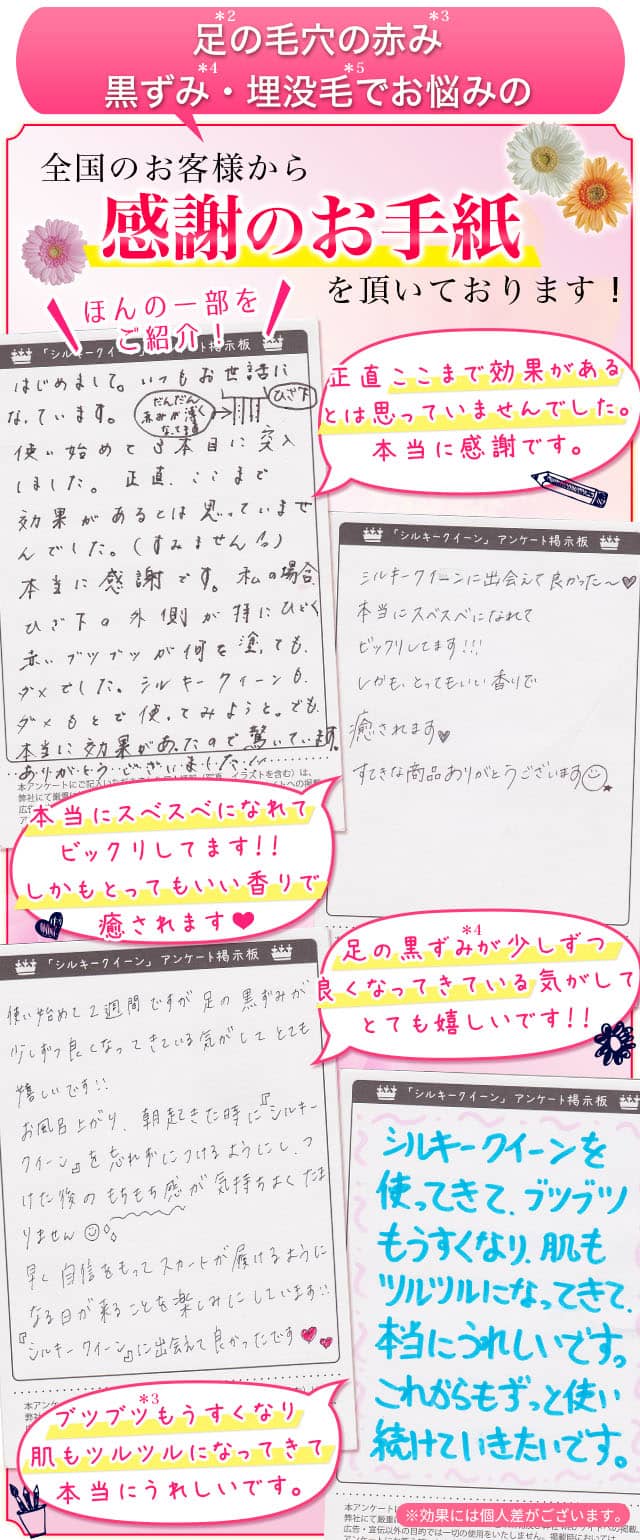 足の毛穴の赤み
*2 *3
黒ずみ・埋没毛でお悩みの
*4 *5
全国のお客様から
感謝のお手紙
を頂いております！
ほんの一部を
ご紹介！
はじめまして。いつもお世話に
なっています。
だんだん
赤みが薄く
なってきた
ひざ下
使い始めて3本目に突入
しました。正直、ここまで
効果があるとは思っていませ
んでした。(すみません
本当に感謝です。私の場合
ひざ下の外側が特にひどく
赤いブツブツが何を塗っても、
ダメでした。シルキークイーンも、
ダメもとで使ってみようと。でも、
本当に効果があったので驚いています。
ありがとうございました
正直ここまで効果がある
とは思っていませんでした。
本当に感謝です。
「シルキークイーン」アンケート掲示板
シルキークイーンに出会えて良かった〜♡
本当にスベスベになれて
ビックリしてます!!!
しかも、とってもいい香りで
癒されます♥
すてきな商品ありがとうございます
本当にスベスベになれて
ビックリしてます!!
しかもとってもいい香りで
癒されます♥
「シルキークイーン」アンケート掲示板
使い始めて2週間ですが足の黒ずみが
少しずつ良くなってきている気がしてとても
嬉しいです!!
お風呂上がり、朝起きた時に『シルキー
クイーン』を忘れずにつけるようにし、つ
けた後のもちもち感が気持ちよくたま
りません
早く自信をもってスカートが履けるように
なる日が来ることを楽しみにしています!!
『シルキークイーン』に出会えて良かったです♥♥
*4
足の黒ずみが少しずつ
良くなってきている気がして
とても嬉しいです!!
「シルキークイーン」アンケート掲示板
シルキークイーンを
使ってきて、ブツブツ
もうすくなり、肌も
ツルツルになってきて、
本当にうれしいです。
これからもずっと使い
続けていきたいです。
*3
ブツブツもうすくなり
肌もツルツルになってきて
本当にうれしいです。
※効果には個人差がございます。